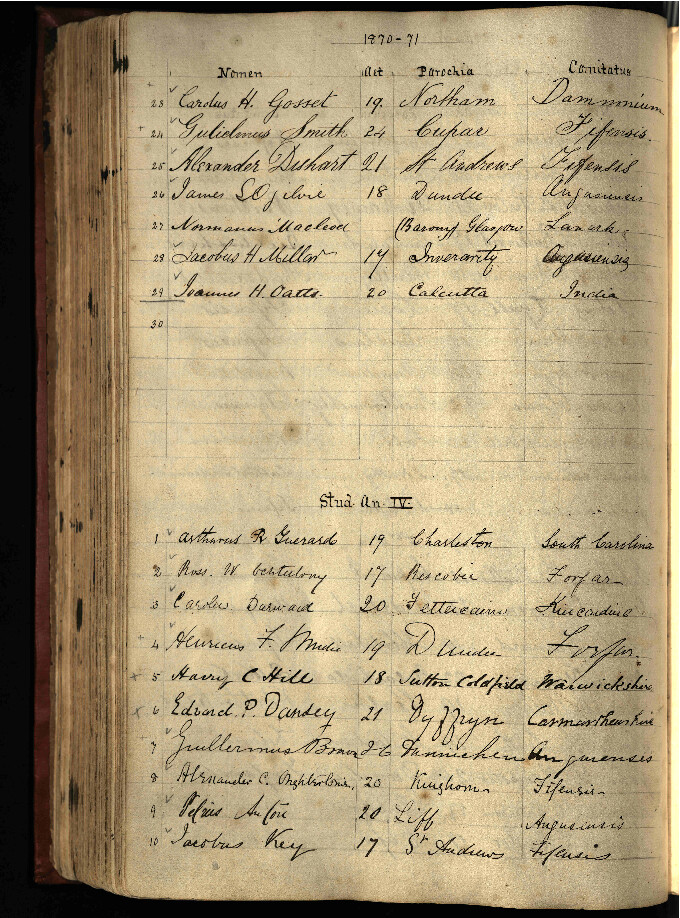 1870-71
Nomen Aet Parochia Comitatus
23 Carolus H. Gosset 19. Northam
24 Gulielmus Smith 24 Cupar Fifensis.
25 Alexander Dishart 21 St Andrews Fifensis
26 James S Ogilvie 18 Dundee Angusiensis
27 Normanus Macleod (Barony) Glasgow Lanark
28 Jacobus H Millar 17 Inverarity Angusiensis
29 Joannes H. Oatts. 20 Calcutta India
30
Stud. An. IV.
1 Arthurus R Guerard 19 Charleston South Carolina
2 Ross. W Ochterlony 17 Rescobie Forfar
3 Carolus Durward 20 Fettercairn Kincardine
4 Henricus F. Mudie 19 Dundee Forfar.
5 Harry C Hill 18 Sutton Coldfield Warwickshire
6 Edward. P. Dandey 21 Dyffryn Carmarthenshire
7 Guillermus Dunnichen Angusensis
8 Alexander C. 20 Kinghorn Fifensis
9 Petrus Anton 20 Liff Angusiensis
10 Jacobus Key 17 St Andrews Fifensis